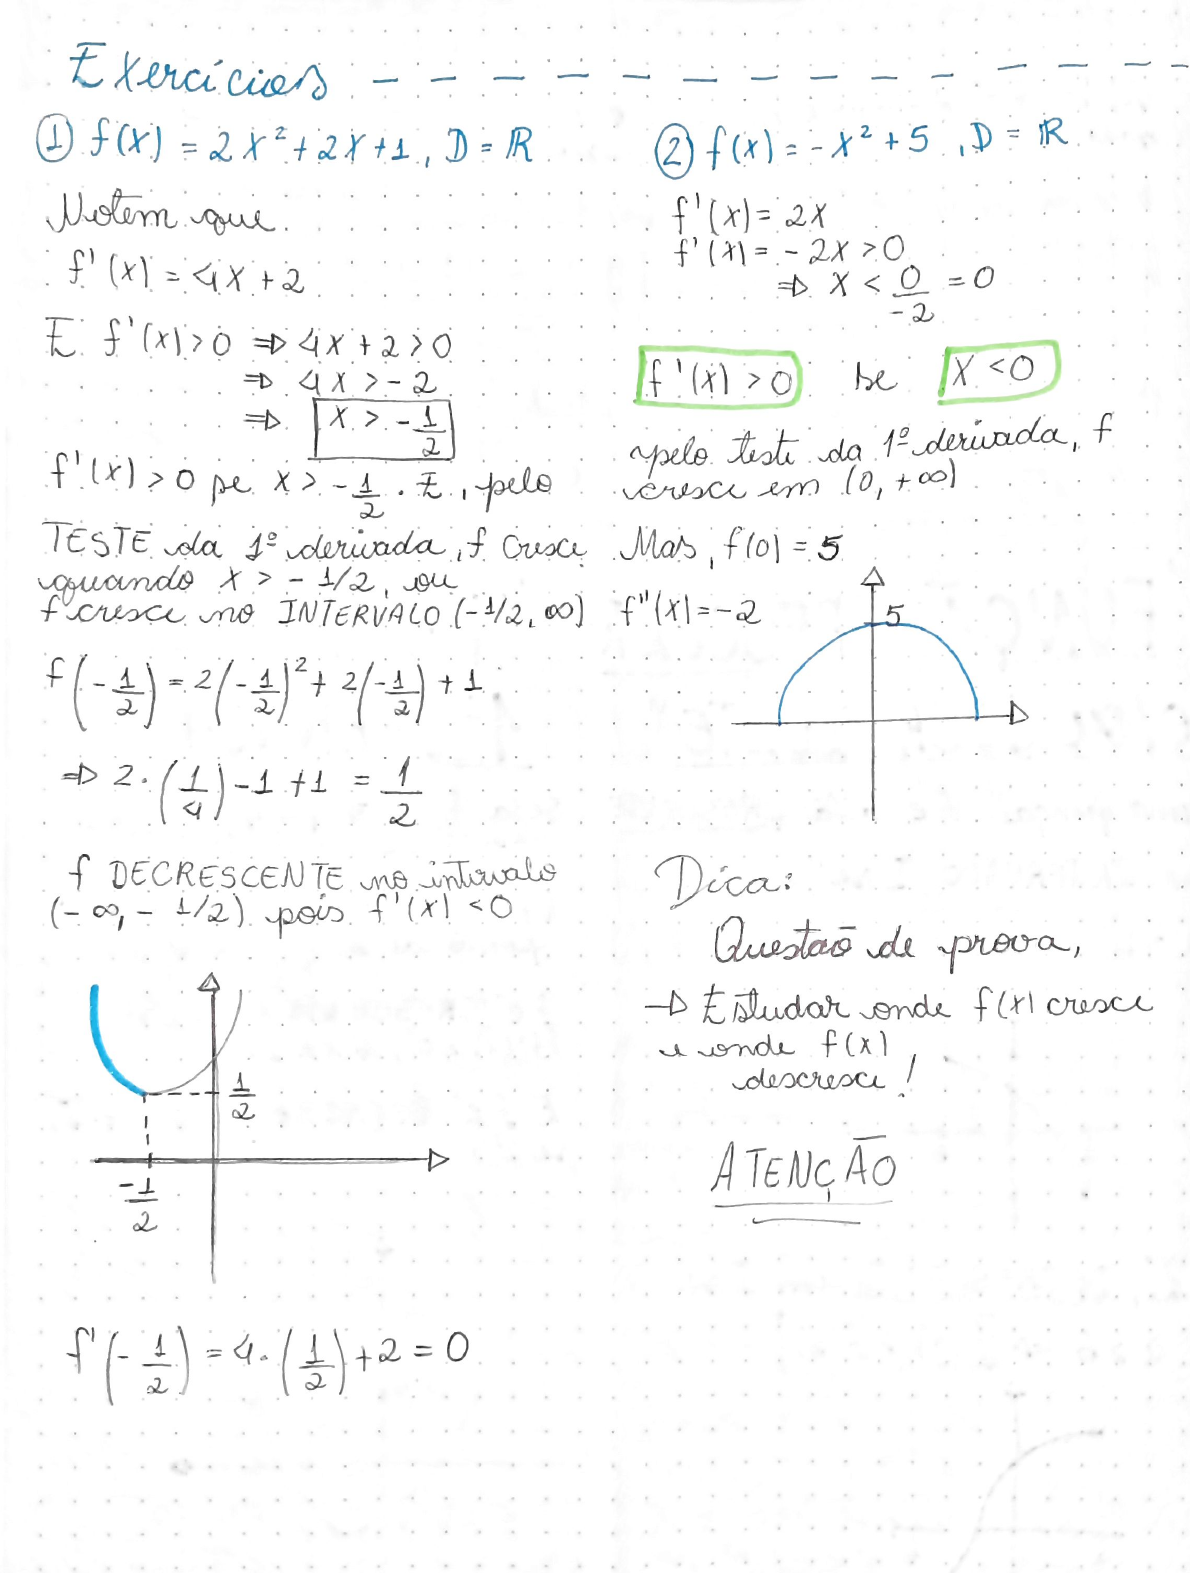 Exercícios
① f(x) = 2x² + 2x + 1, D = ℝ
Notem que
f'(x) = 4x + 2
E f'(x) > 0 ⇒ 4x + 2 > 0
⇒ 4x > -2
⇒ x > -1/2
f'(x) > 0 pe x > -1/2. E, pelo
TESTE da 1º derivada, f cresce
quando x > -1/2, ou
f cresce no INTERVALO (-1/2, ∞)
f(-1/2) = 2(-1/2)² + 2(-1/2) + 1
⇒ 2·(1/4) - 1 + 1 = 1/2
f DECRESCENTE no intervalo
(-∞, -1/2) pois f'(x) < 0
1/2
-1/2
f'(-1/2) = 4·(1/2) + 2 = 0
② f(x) = -x² + 5, D = ℝ
f'(x) = 2x
f'(x) = -2x > 0
⇒ x < 0/-2 = 0
f'(x) > 0 se x < 0
pelo teste da 1º derivada, f
cresce em (0, +∞)
Mas, f(0) = 5
f''(x) = -2
5
Dica:
Questaõ de prova,
→ Estudar onde f(x) cresce
e onde f(x)
descresce!
ATENÇÃO